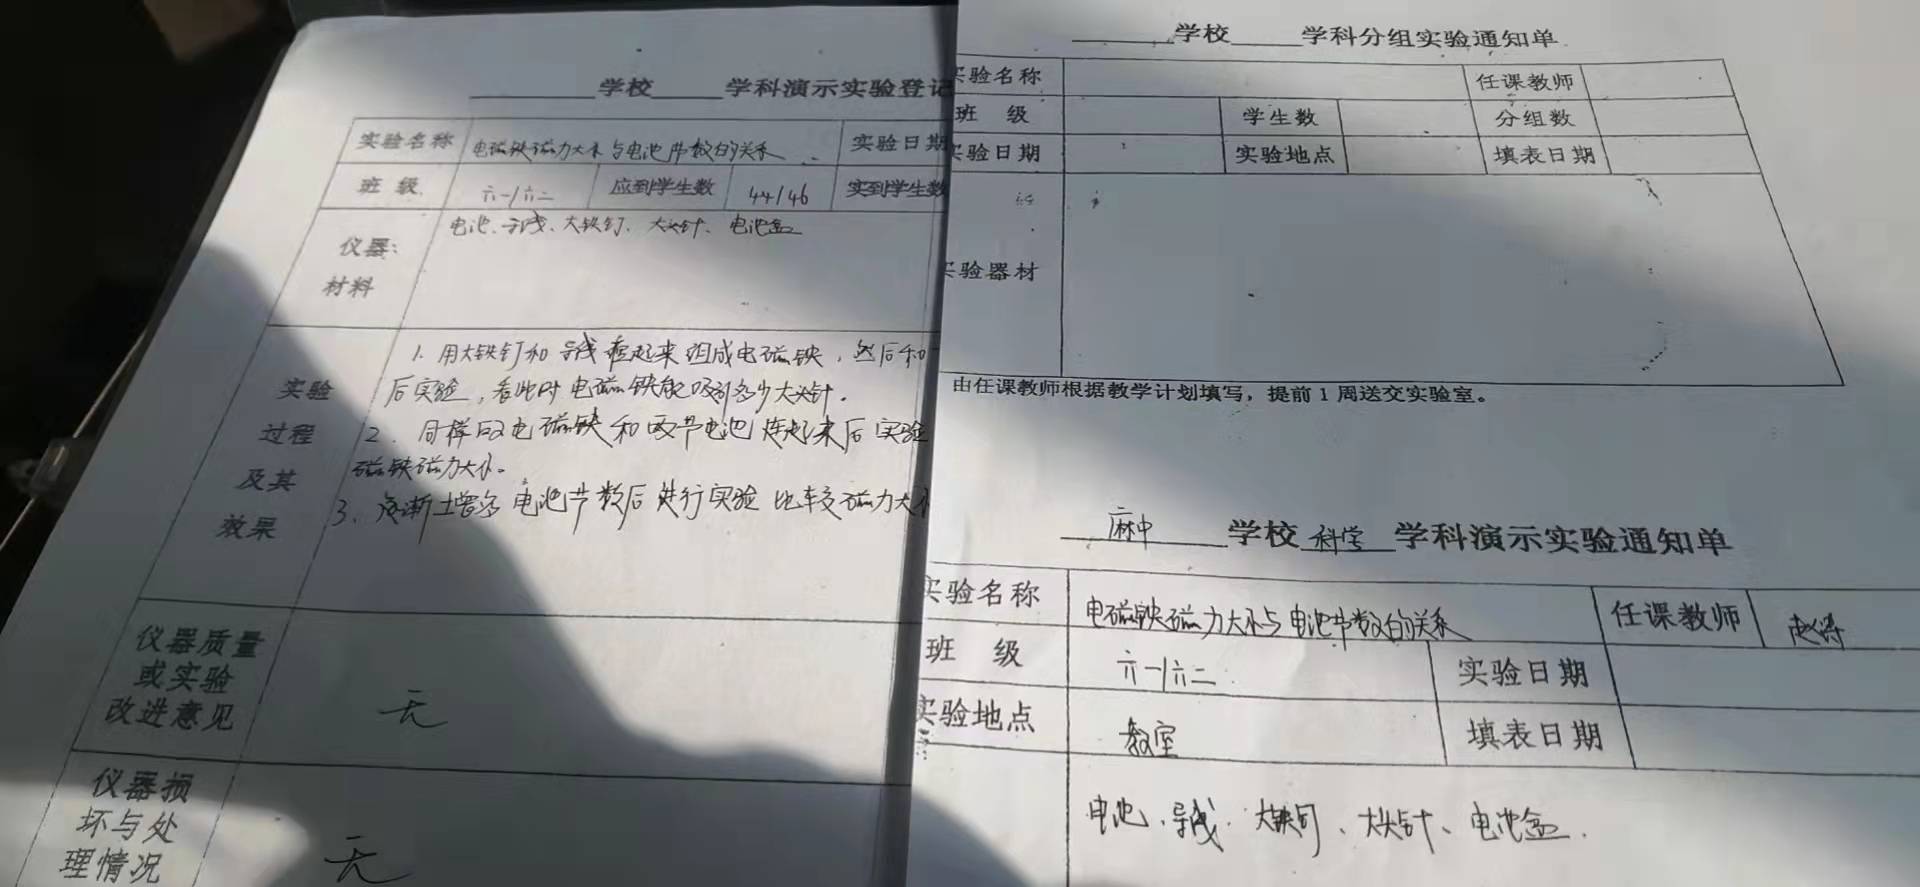 学校 学科演示实验登记
实验名称 电磁铁磁力大小与电池节数的关系 实验日期
班级 六一/六二 应到学生数 44/46 实到学生数
仪器: 电池、导线、大铁钉、大头针、电池盒
材料
1. 用大铁钉和导线 起来组成电磁铁，然后和
后实验，看此时电磁铁能吸引多少大头针。
2. 同样的电磁铁和两节电池连起来后实验
磁铁磁力大小。
3. 逐渐增多电池节数后进行实验比较磁力大小
实验
过程
及其
效果
仪器质量
或实验
改进意见
无
仪器损
坏与处
理情况
无
学校 学科分组实验通知单
实验名称 任课教师
班级 学生数 分组数
实验日期 实验地点 填表日期
实验器材
由任课教师根据教学计划填写，提前1周送交实验室。
麻中 学校 科学 学科演示实验通知单
实验名称 电磁铁磁力大小与电池节数的关系 任课教师 赵涛
班级 六一/六二 实验日期
实验地点 教室 填表日期
电池、导线、大铁钉、大头针、电池盒.